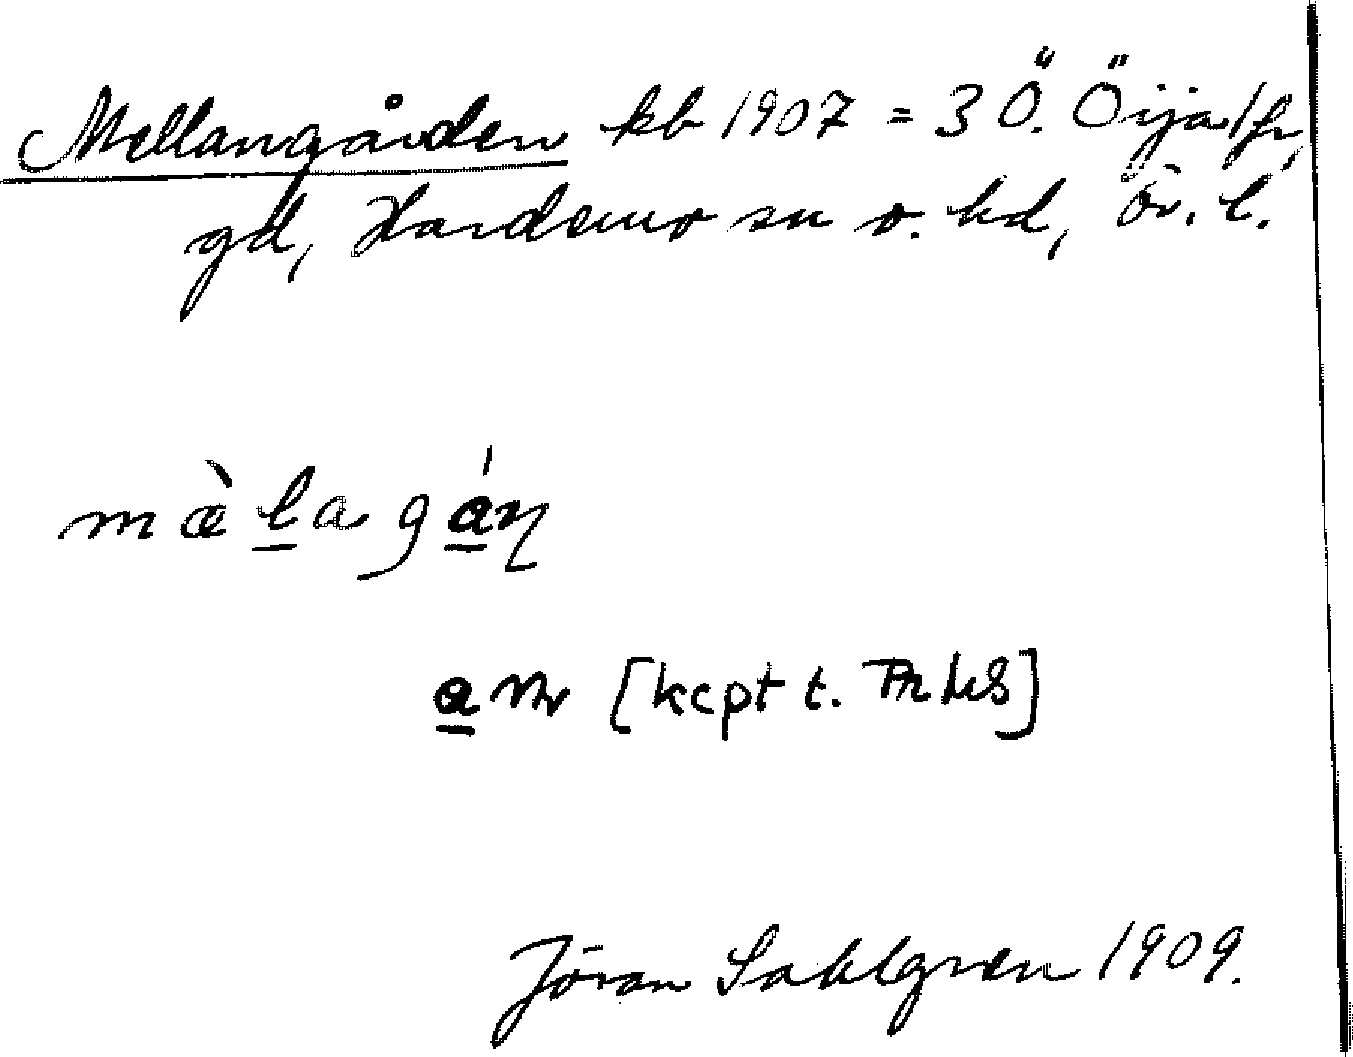 Mellangården kb 1907 = 3 Ö. Öija /fr,
gd, Hardemo sn o. hd, Ör. l.
mæ̀l̲agá̲ŋ
a̲ [kcpt t.
Jöran Sahlgren 1909.